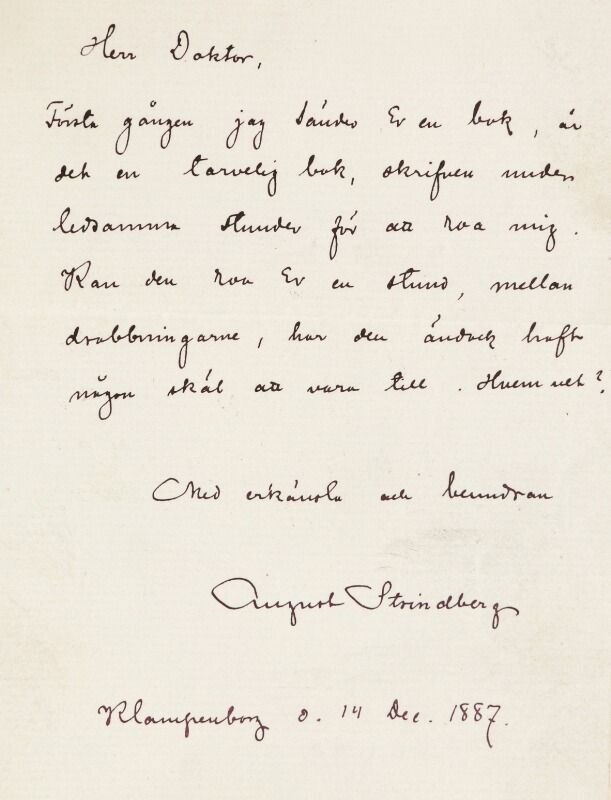 Herr Doktor,
Första gången jag sänder Er en bok, är
det en tarvelig bok, skrifven under
ledsamma stunder för att roa mig.
Kan den roa Er en stund, mellan
drabbningarne, har den ändock haft
någon skäl att vara till. Hvem vet?
Med erkänsla och beundran
August Strindberg
Klampenborg d. 14 Dec. 1887.